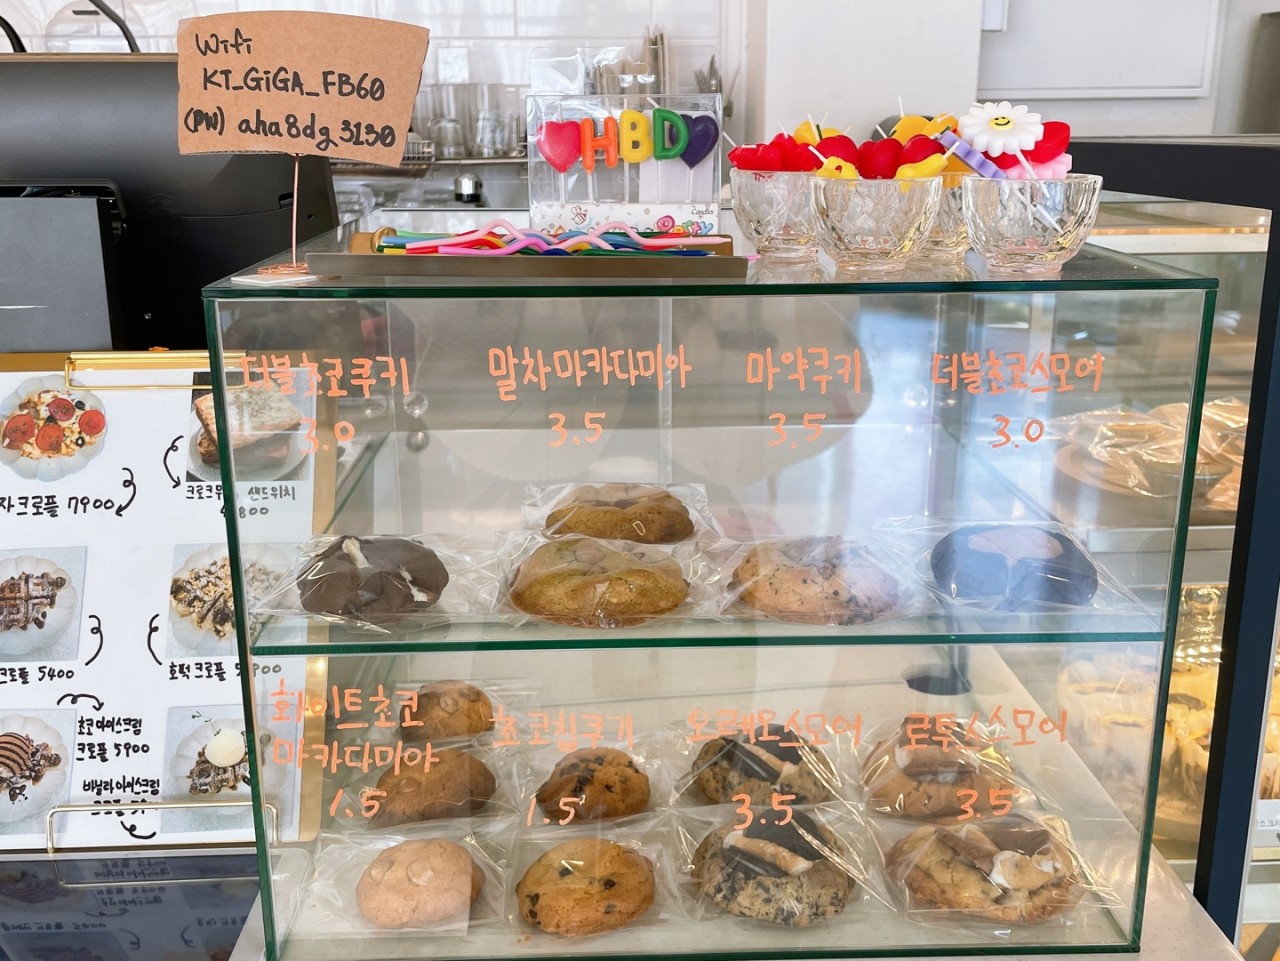 Wifi
KT_GiGA_FB60
(PW) aha8dg3130
HBD
Candles
Party
더블초코쿠키
3.0
말차마카다미아
3.5
마약쿠키
3.5
더블초코스모어
3.0
화이트초코
마카다미아
1.5
초코칩쿠키
1.5
오레오스모어
3.5
로투스스모어
3.5
자크로플 7900
샌드위치
크로플 5400
호떡크로플
초코아이스크림
크로플 5900
바닐라아이스크림